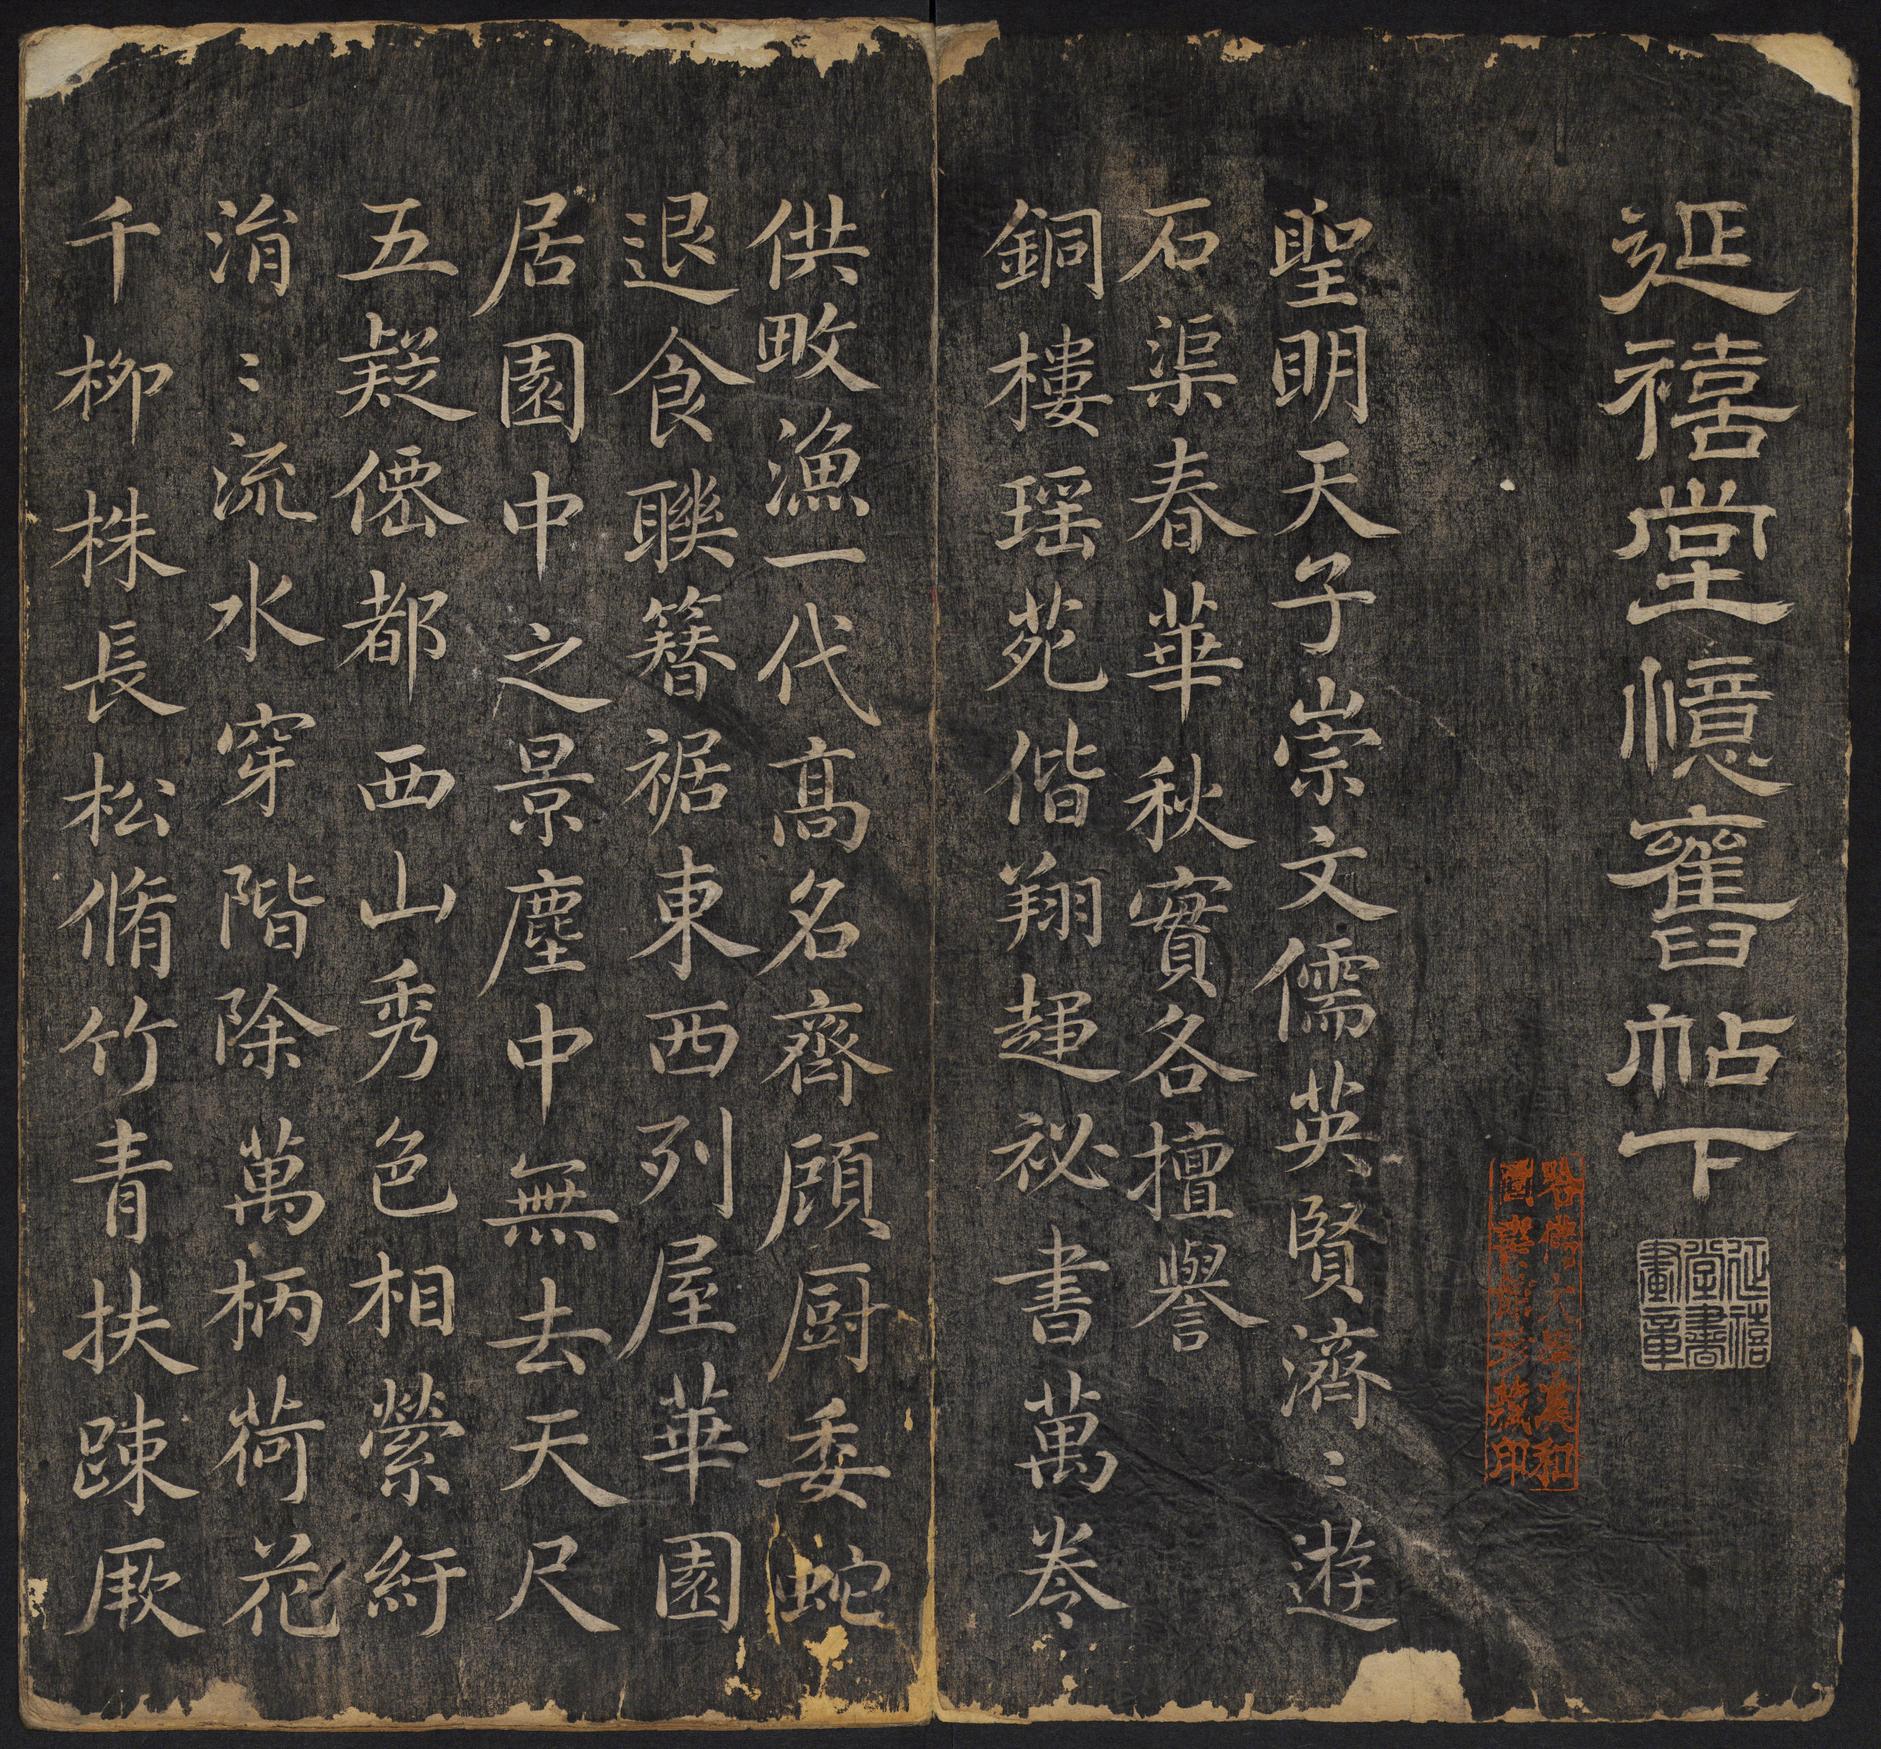 延禧堂憶舊帖下
延禧
堂書
畫章
聖明天子崇文儒英賢濟〻遊
石渠春華秋實各擅譽
銅樓瑶苑偕翔趯祕書萬卷
供畋漁一代高名齊顧厨委蛇
退食聯簪裾東西列屋華園
居園中之景塵中無去天尺
五疑僊都西山秀色相縈紆
涓〻流水穿階除萬柄荷花
千柳株長松脩竹青扶踈厥